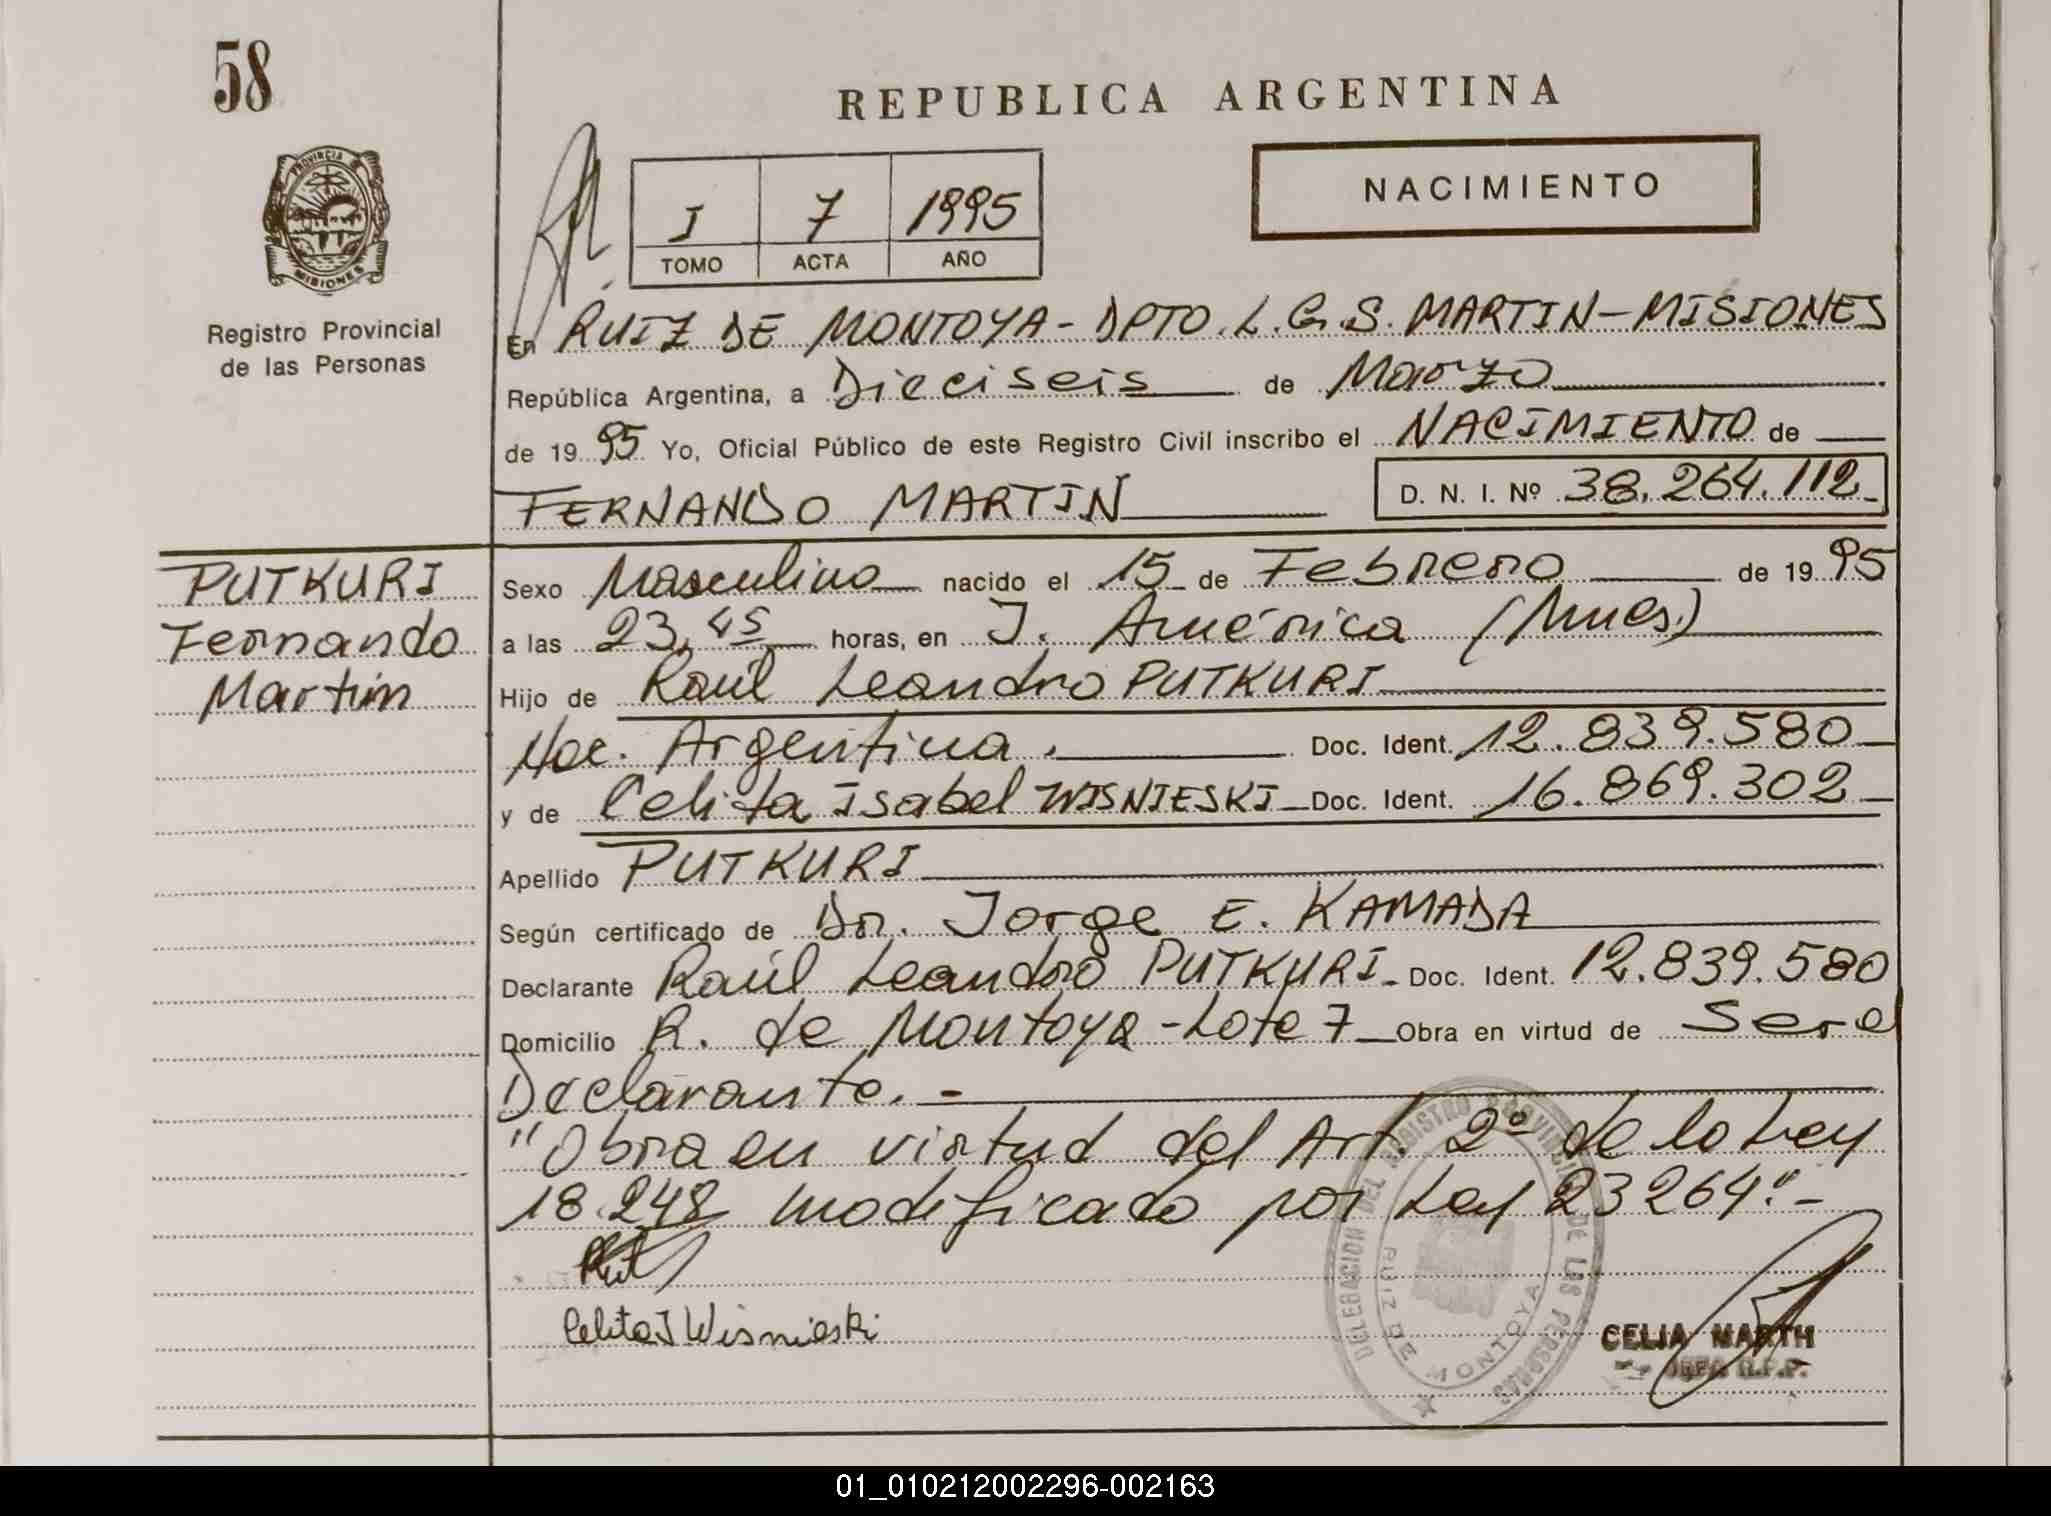 58
REPUBLICA ARGENTINA
PROVINCIA DE
MISIONES
Registro Provincial
de las Personas
NACIMIENTO
I 7 1995
TOMO ACTA AÑO
En RUIZ DE MONTOYA - DPTO. L.G.S. MARTIN - MISIONES
República Argentina, a Dieciseis de Marzo
de 19 95 Yo, Oficial Público de este Registro Civil inscribo el NACIMIENTO de
FERNANDO MARTIN D. N. I. Nº 38.264.112
PUTKURI
Fernando
Martin
Sexo Masculino nacido el 15 de Febrero de 19 95
a las 23,45 horas, en J. América (Mnes.)
Hijo de Raúl Leandro PUTKURI
Nac. Argentina. Doc. Ident. 12.839.580
y de Celita Isabel WISNIESKI Doc. Ident. 16.869.302
Apellido PUTKURI
Según certificado de Dr. Jorge E. KAMADA
Declarante Raúl Leandro PUTKURI - Doc. Ident. 12.839.580
Domicilio R. de Montoya - Lote 7 Obra en virtud de Ser el
Declarante. -
"Obra en virtud del Art. 2º de la Ley
18.248 modificado por Ley 23264". -
Celita I Wisnieski
DELEGACION DEL REGISTRO PROVINCIAL DE LAS PERSONAS
RUIZ DE MONTOYA
CELIA MARTH
JEFA R.P.P.
01_010212002296-002163